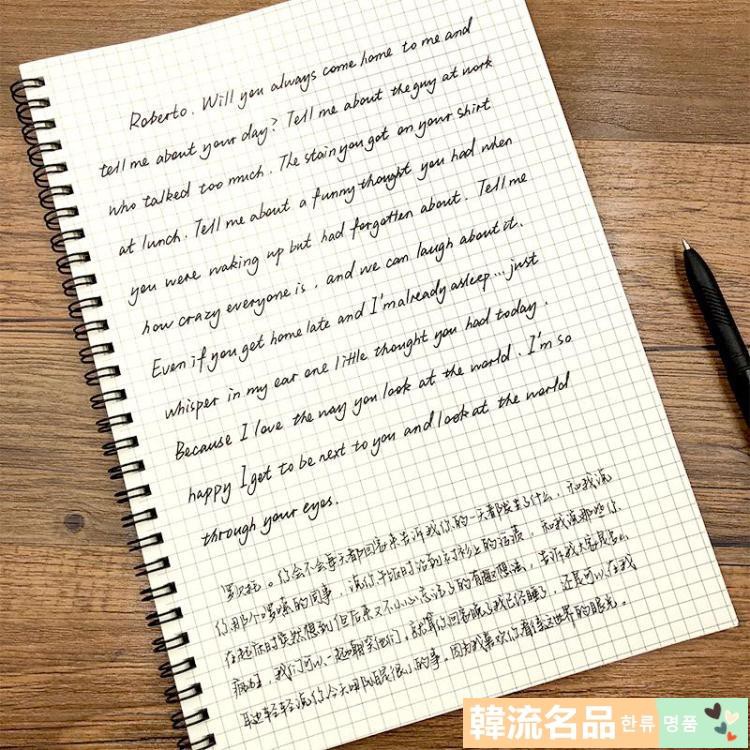 Roberto. Will you always come home to me and
tell me about your day? Tell me about the guy at work
who talked too much. The stain you got on your shirt
at lunch. Tell me about a funny thought you had when
you were waking up but had forgotten about. Tell me
how crazy everyone is. and we can laugh about it.
Even if you get home late and I'm already asleep...just
whisper in my ear one little thought you had today.
Because I love the way you look at the world. I'm so
happy I get to be next to you and look at the world
through your eyes.
罗贝托。你会不会每天都回家来告诉我你的一天都发生了什么,和我说
你那个啰嗦的同事,说你午饭时沾到衬衫上的污渍,和我说那些你
在起床时突然想到但后来又不小心忘记了的有趣想法,告诉我大家是多么
疯狂,我们可以一起嘲笑他们。就算你回家晚了我已经睡了,还是可以在我
耳边轻轻说你今天哪怕是很小的事。因为我喜欢你看待这世界的眼光。
韓流名品 한류 명품